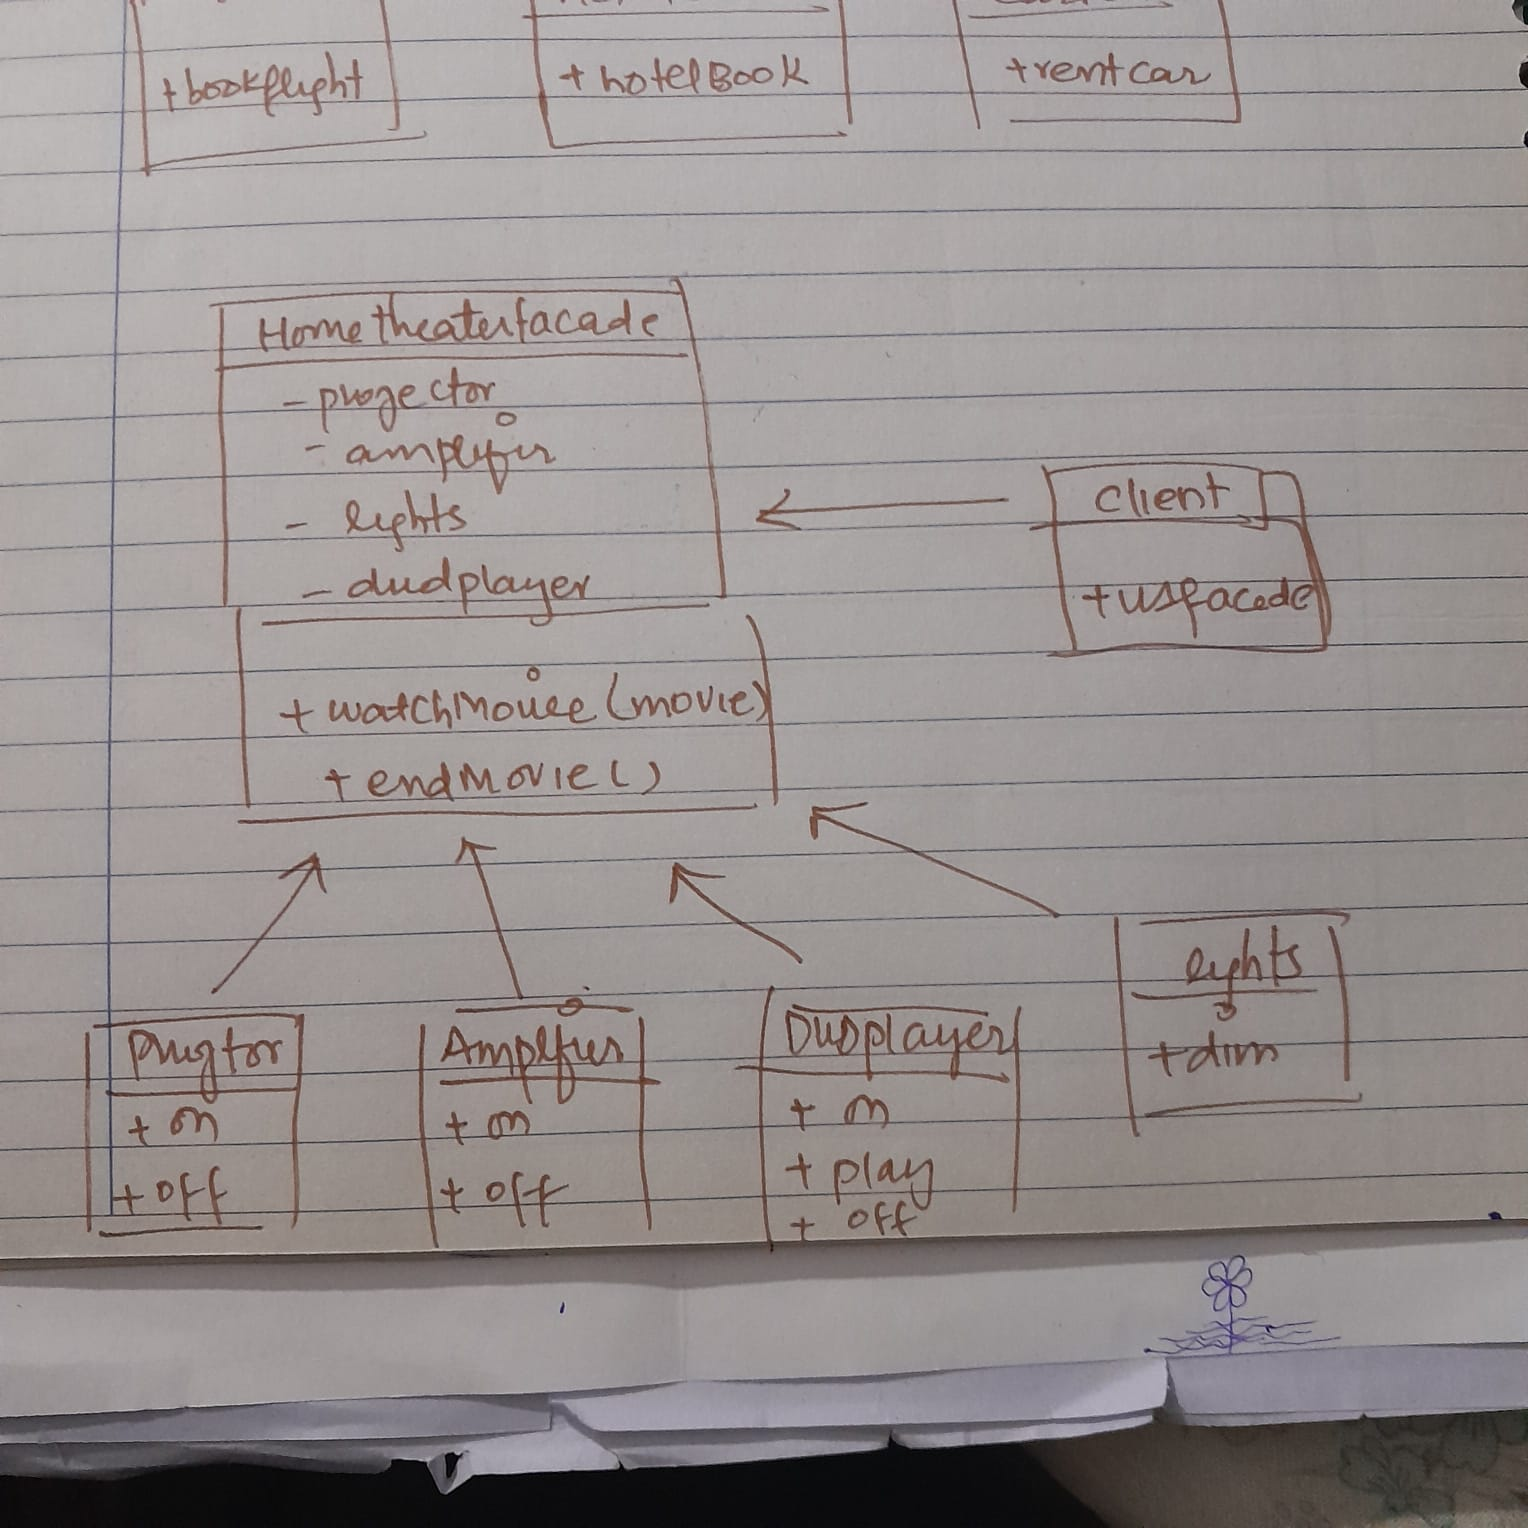 +bookflight
+hotelBook
+rentcar
Hometheaterfacade
- progector
- amplifir
- lights
- dudplayer
+watchMouiee (movie)
+endMovie()
client
+usfacade
Amplfier
+ on
+ off
+ on
+ off
Dusplayer
+ on
+ play
+ off
lights
+dim